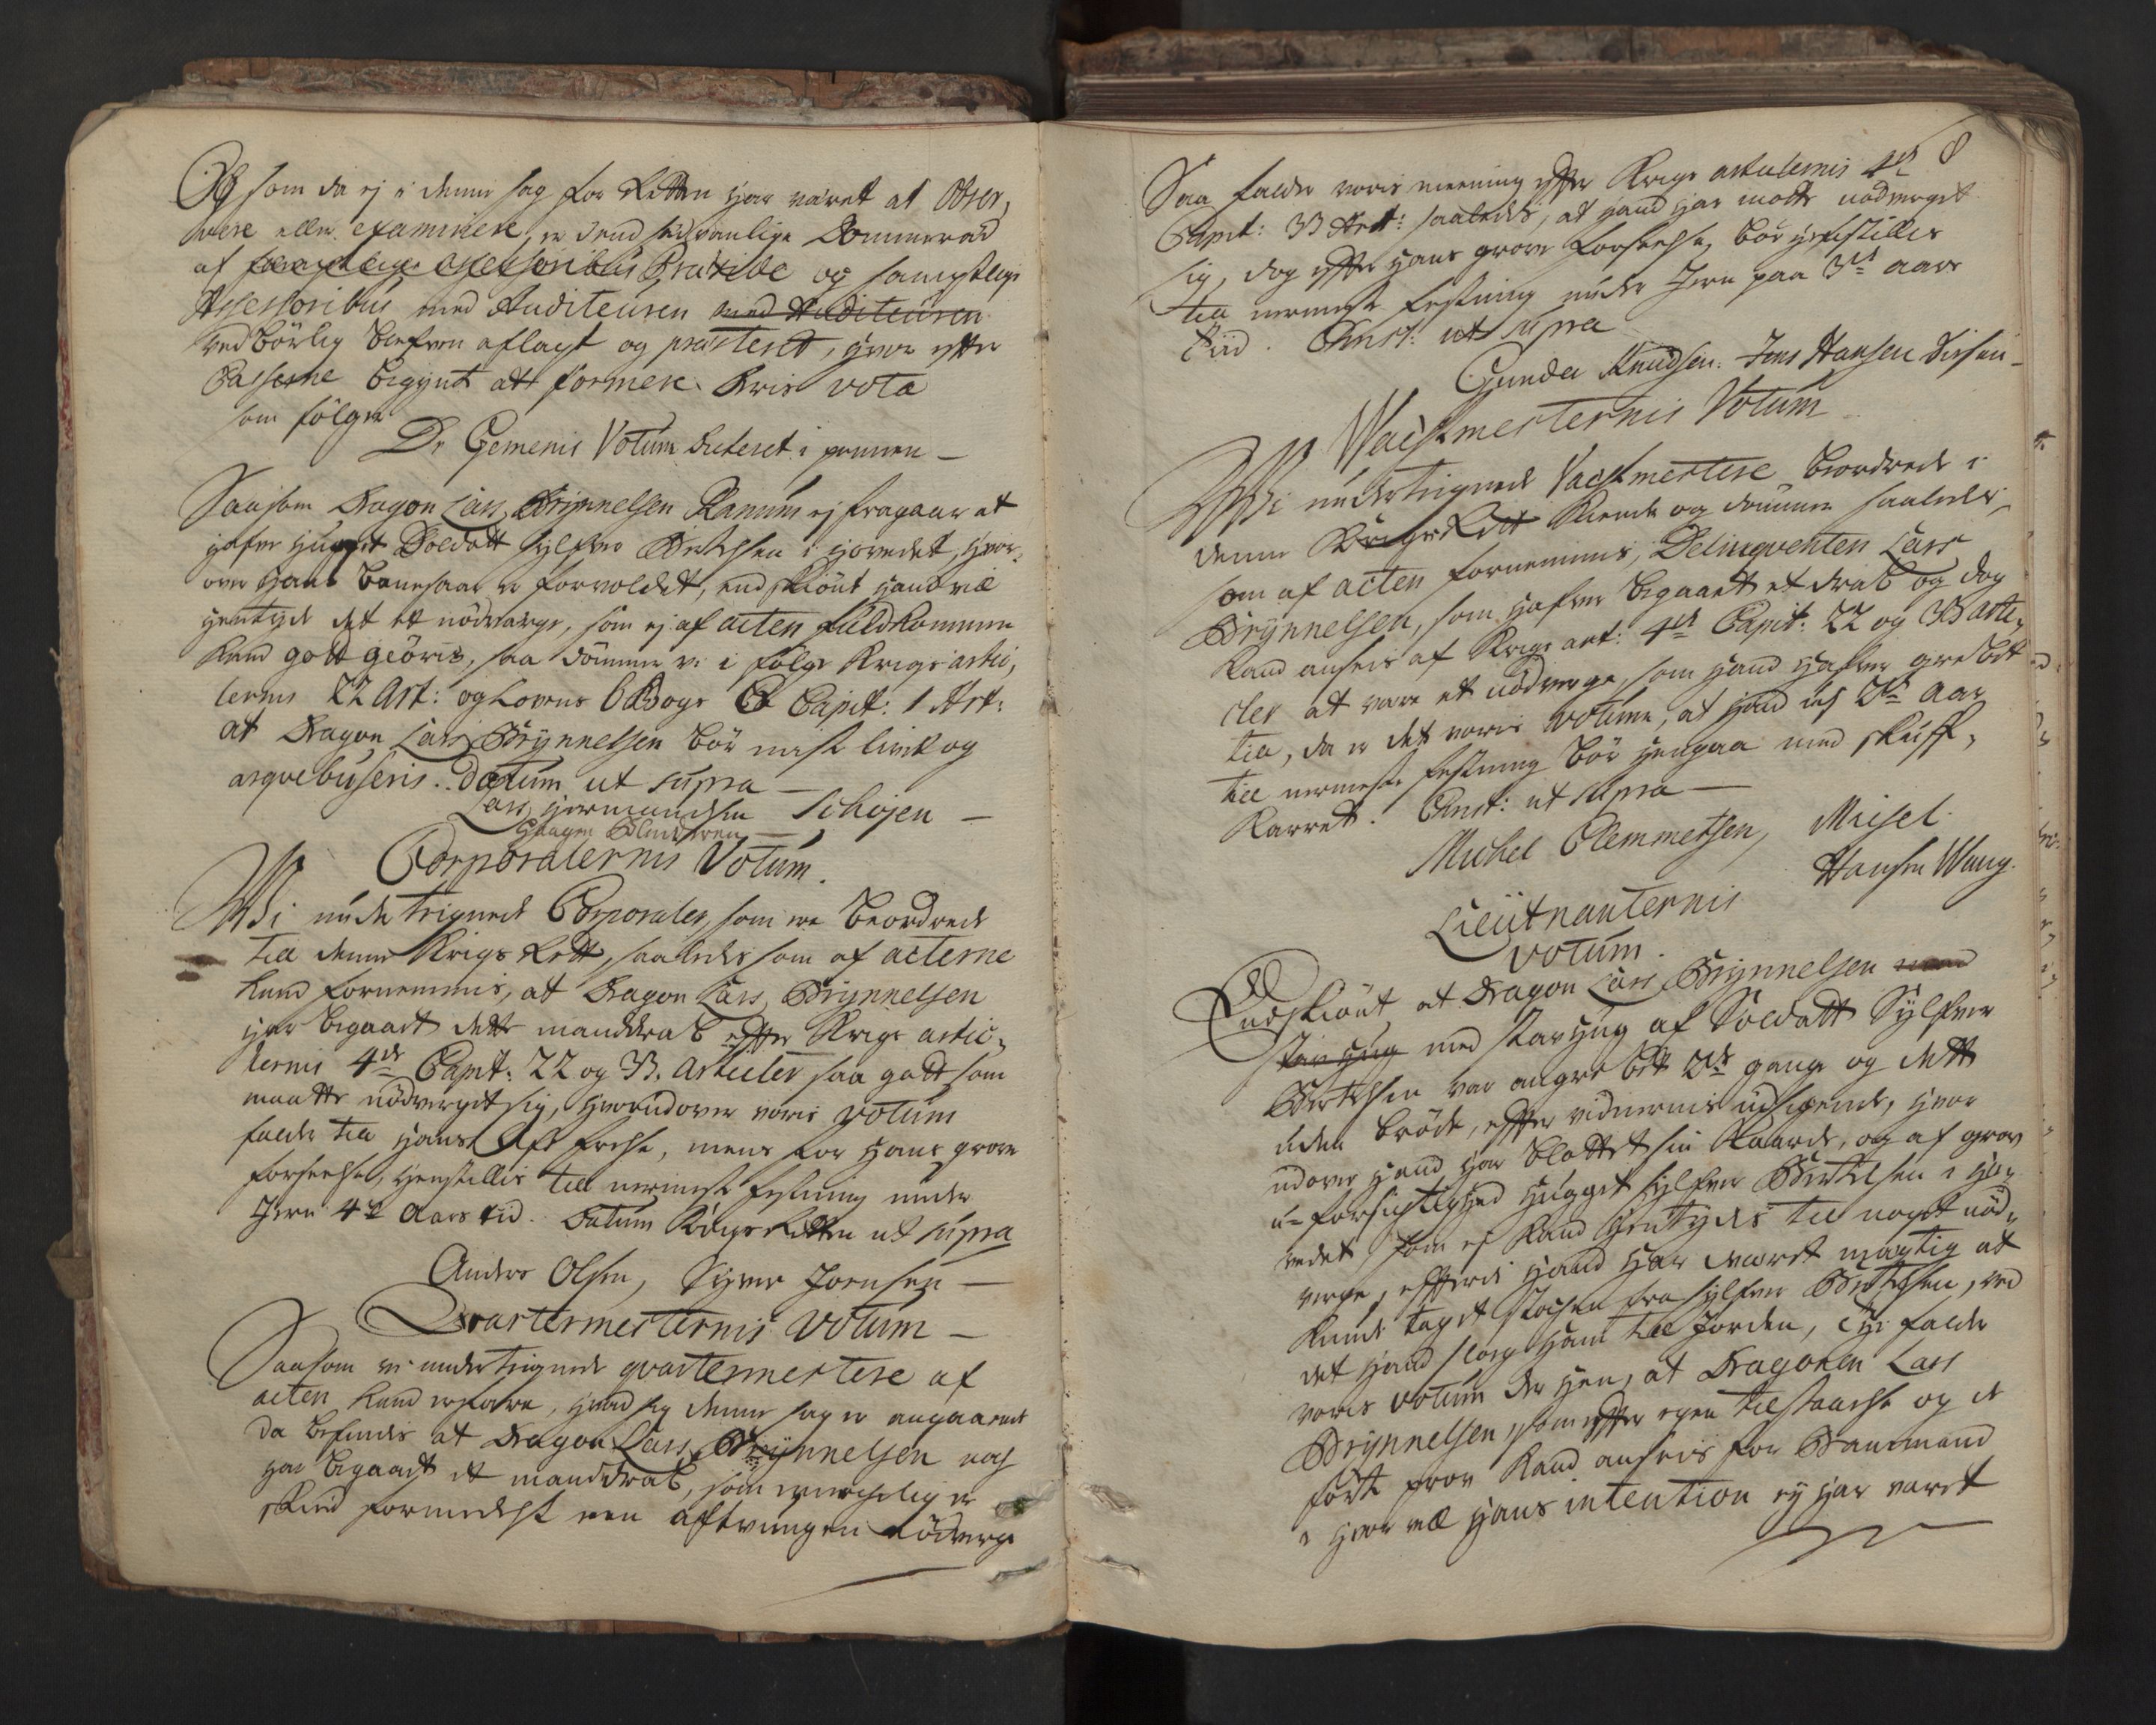 Og som da ej i denne sag for Retten har været at obser,
vere eller examinere, er dend sædvanlige Dommereed
af samptlige assessoribus Præside og samptlige
Assessoribus med Auditeuren med Auditeuren
ved børlig breven aflagt og præsteret, hvor efter
Classerne begynt at formere deris vota
som følger
De Gemenis Votum dicteret i pennen –
Saasom Dragon Lars Brynnelsen Ramum ej fragaar at
hafve hugget Soldatt Sylfver Bertelsen i hovedet, hvor,
over hans banesaar er forvoldet, endskiønt hand vil
hentyde det et nødverge, som ej af acten fuldkommen
kand godtgiøris, saa dømmer vi i følge Krigs articu,
lernis 22 Art: og Lovens 6 Bogs Capit: 1 Art:
at Dragon Lars Brynnelsen bør miste livet og
arqvebuseris. Datum ut supra –
Lars Hermandsen Schøjen –
Haagen
Corporalernis Votum.
Wi undertegnede Corporaler, som ere beordrede
till denne Krigs Rett, saaledes som af acterne
kand fornemmis, at Dragon Lars Brynnelsen
har begaaet dette manddrab efter Krigs artic,
lernis 4de Capit: 22 og 33. Articler saa godt som
maatte nødverget sig, hvorudover voris votum
falder till hans Lifs frelse, mens for hans grove
forseelse, henstillis till nermeste festning under
Jern 4re Aars tid. Datum Krigs Retten ut supra
Anders Olsen, Syver Joensen –
Qvartermesternis Votum –
Saasom vi undertegnede qvartermestere af
acten kand erfare, hvad sig denne sag er angaaende
da befindis at Dragon Lars Brynnelsen vel
har begaaet et manddrab, som
skeed formedelst een aftvungen nødverge
8
Saa falder voris meening efter Krigs articulernis 4de
Capit: 33 Art: saaledes, at hand har maatt nødverget
sig, dog efter hans grove forseelse, bør henstillis
till nermeste festning under Jern paa 3de aars
tiid. Anst: ut supra
Gunder Knudsen. Jens Hansen
Wachmesternis Votum
Wi undertegnede Vachmestere, beordrede i
denne Krigs Rett kiende og dømmer saaledes,
som af acten fornemmis, Delinqventen Lars
Brynnelsen, som hafver begaaet et drab og dog
kand ansees af Krigs art: 4de Capit: 22 og 33 arti,
cler at være et nødverge, som hand hafver grebet
till, da er det voris votum, at hand udj 2de aar
till nermeste festning bør hengaa med skuff,
karret. Anst: ut supra –
Michel Clemmetsen, Misel
Hansen Wang.
Lieutnanternis
votum.
Endskiønt at Dragon Lars Brynnelsen
stav hug med stav hug af Soldatt Sylfver
Bertelsen var angrebet 2de gange og dett
uden brøde, efter vidnernis udsigende, hvor
udover hand har blottet sin kaarde, og af grov
u-forsigtighed hugget Sylfver Bertelsen i ho,
vedet, som ej kand hentydes till noget nød,
verge, efterdi hand har været mægtig at
kunde taget stochen fra Sylfver Bertelsen, ved
det hand slog ham till Jorden, thj falder
voris votum der hen, at Dragonen Lars
Brynnelsen, som efter egen tilstaaelse og
førte prov kand ansees for Banemand
i hvor vel hans intention ej har været